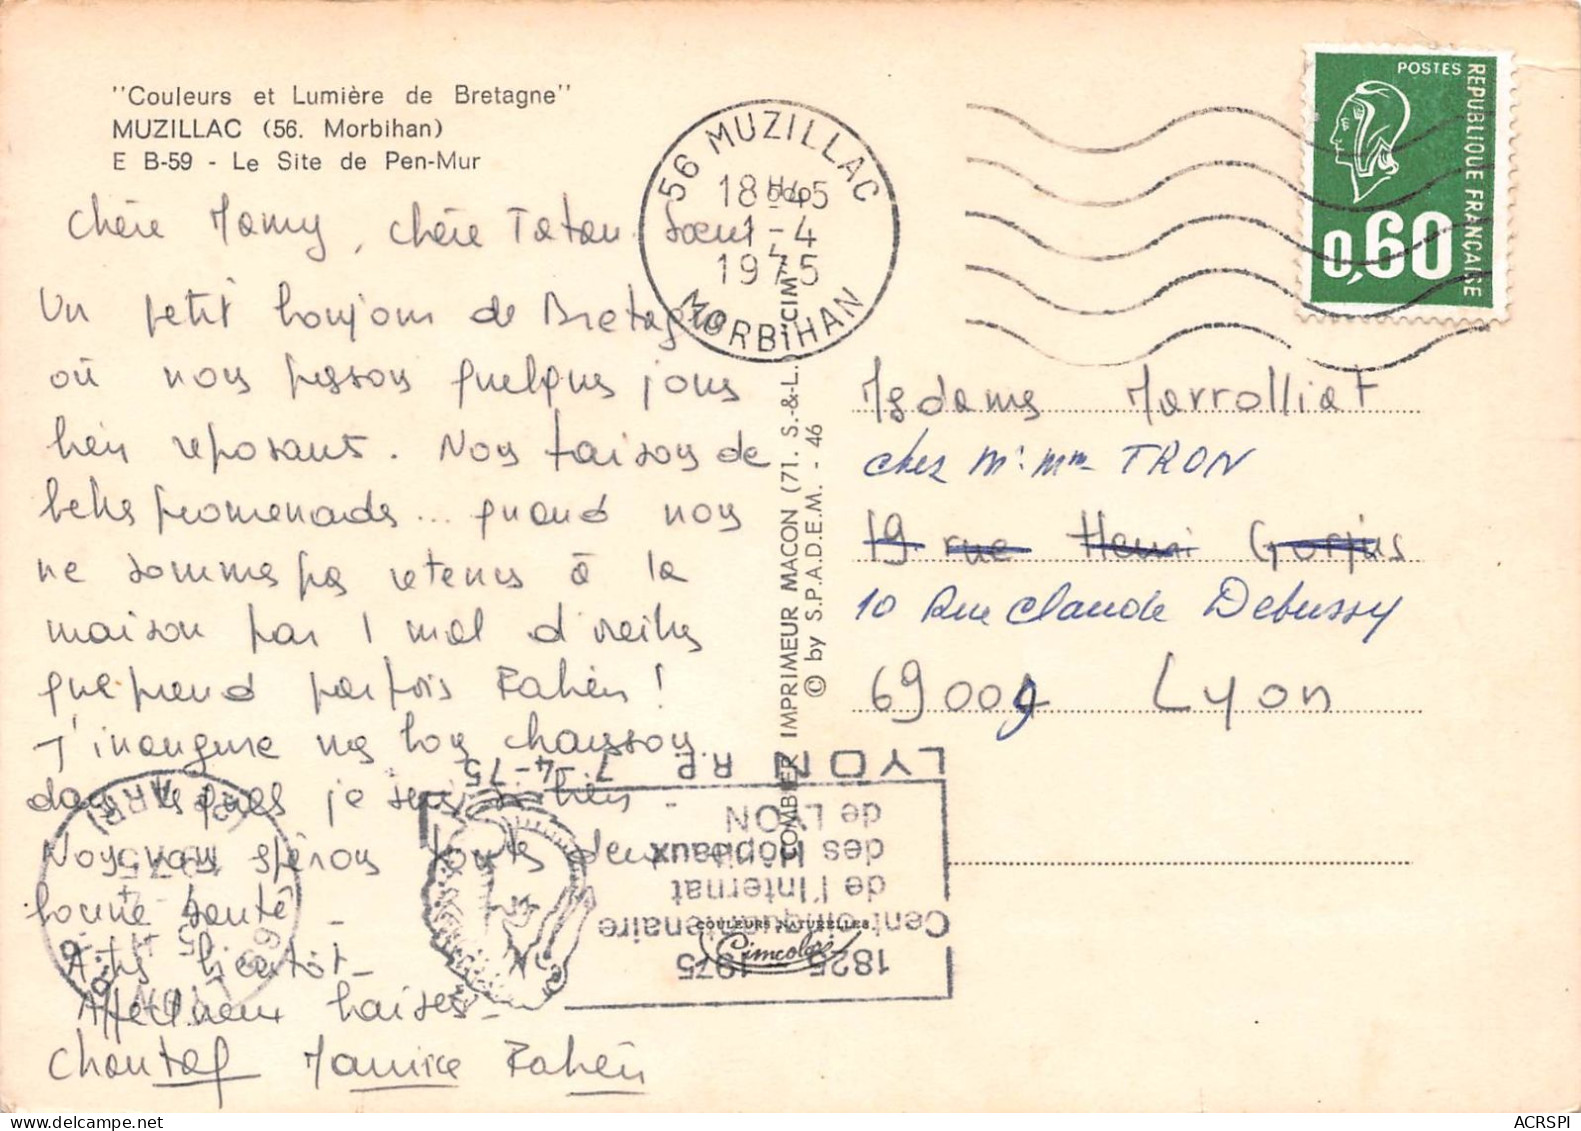 "Couleurs et Lumière de Bretagne"
MUZILLAC (56. Morbihan)
E B-59 - Le Site de Pen-Mur
Chère Mamy, chère Tatan
Un petit bonjour de Bretagne
où nous passons quelques jours
bien reposant. Nous faisons de
belles promenades... quand nous
ne sommes pas retenus à la
maison par 1 mal d'oreilles
que prend parfois Fabien !
J'inaugure mes bons chaussons
dans je suis bien -
Nous vous espérons toutes deux en
bonne santé -
A très bientôt -
Affectueux baisers -
Chantal Maurice Fabien
56 MUZILLAC
18H45
1-4
1975
MORBIHAN
POSTES
REPUBLIQUE FRANÇAISE
0,60
Madame Marrolliat
chez Mr. Mme TRON
19 rue Henri Gorjus
10 Rue Claude Debussy
69004 Lyon
COMBIER IMPRIMEUR MACON (71. S.-&-L.) "CIM"
© by S.P.A.D.E.M. - 46
LYON R.P. 7-4-75
1825 1975
Centcinquantenaire
de l'Internat
des Hôpitaux
de LYON
COULEURS NATURELLES
Cimcolor
69 LYON
1975
ACRSPI